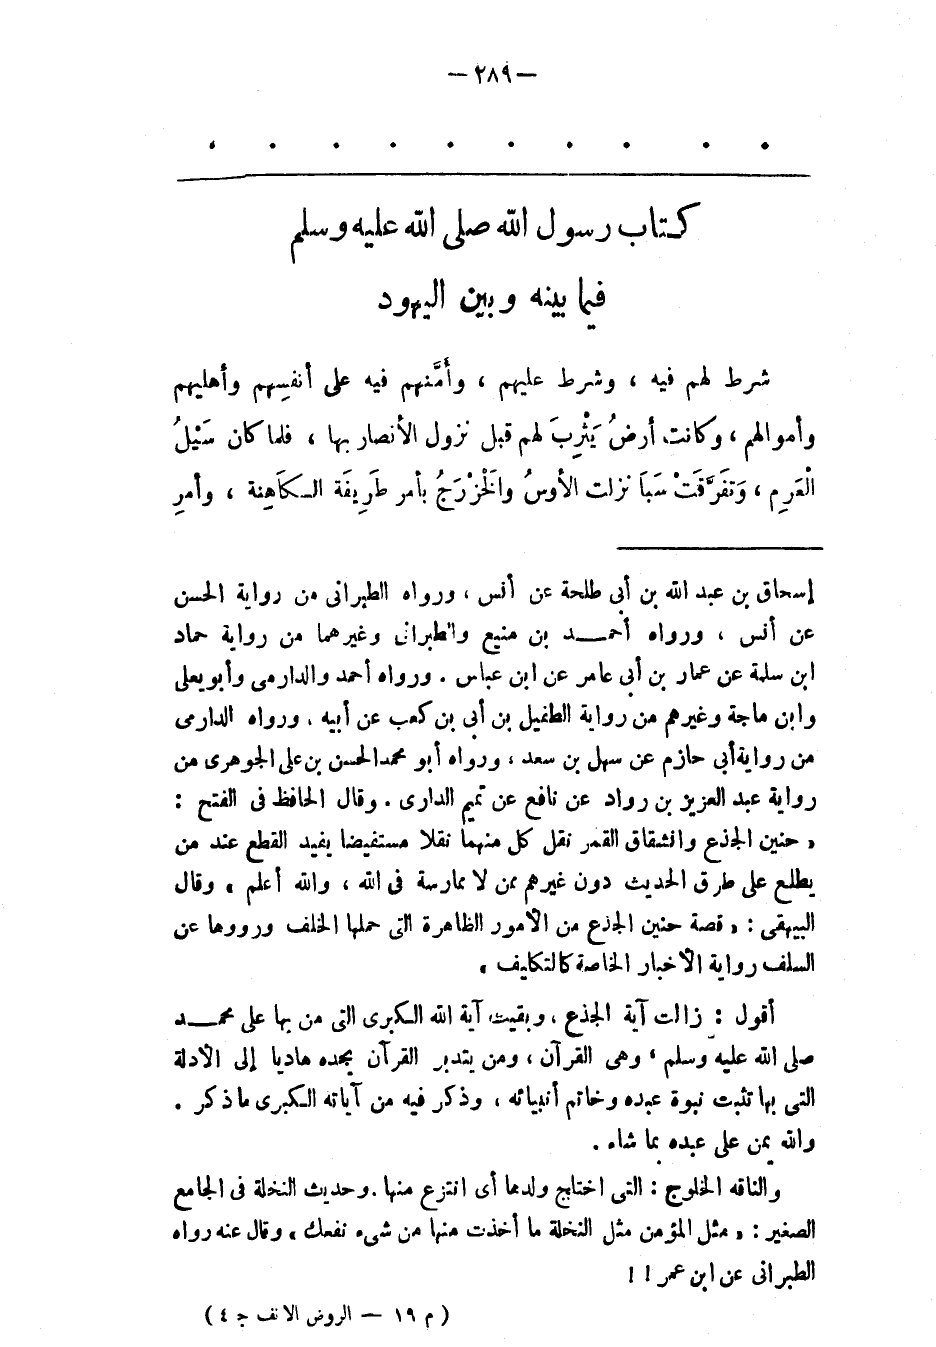 — ٢٨٩ —
. . . . . . . . . .
كتاب رسول الله صلى الله عليه وسلم
فيما بينه وبين اليهود
شرط لهم فيه ، وشرط عليهم ، وأَمَّنهم فيه على أنفسِهم وأهليهم
وأموالهم ، وكانت أرضُ يَثْرِبَ لهم قبل نزول الأنصار بها ، فلما كان سَيْلُ
الْعَرِمِ ، وَتَفَرَّقَتْ سَبَأ نزلت الأوسُ والْخَزْرَجُ بأمر طَرِيفَة الـكاَهِنة ، وأمرِ
إسحاق بن عبد الله بن أبى طلحة عن أنس ، ورواه الطبرانى من رواية الحسن
عن أنس ، ورواه أحمـــد بن منيع والطبرانى وغيرهما من رواية حماد
ابن سلمة عن عمار بن أبى عامر عن ابن عباس . ورواه أحمد والدارمى وأبو يعلى
وابن ماجة وغيرهم من رواية الطفيل بن أبى بن كعب عن أبيه ، ورواه الدارمى
من رواية أبى حازم عن سهل بن سعد ، ورواه أبو محمد الحسن بن على الجوهرى من
رواية عبد العزيز بن رواد عن نافع عن تميم الدارى . وقال الحافظ فى الفتح :
« حنين الجذع وانشقاق القمر نقل كل منهما نقلا مستفيضا يفيد القطع عند من
يطلع على طرق الحديث دون غيرهم ممن لا ممارسة فى الله ، والله أعلم » وقال
البيهقى : « قصة حنين الجذع من الأمور الظاهرة التى حملها الخلف ورووها عن
السلف رواية الأخبار الخاصة كالتكايف »
أقول : زالت آية الجذع ، وبقيت آية الله الـكبرى التى من بها على محمـــد
صلى الله عليه وسلم ، وهى القرآن ، ومن يتدبر القرآن يجده هاديا إلى الأدلة
التى بها تثبت نبوة عبده وخاتم أنبيائه ، وذكر فيه من آياته الـكبرى ما ذكر .
والله يمن على عبده بما شاء .
والناقه الخلوج : التى اختلج ولدها أى انتزع منها . وحديث النخلة فى الجامع
الصغير : « مثل المؤمن مثل النخلة ما أخذت منها من شىء نفعك » وقال عنه رواه
الطبرانى عن ابن عمر ! !
( م ١٩ — الروض الانف ج ٤ )